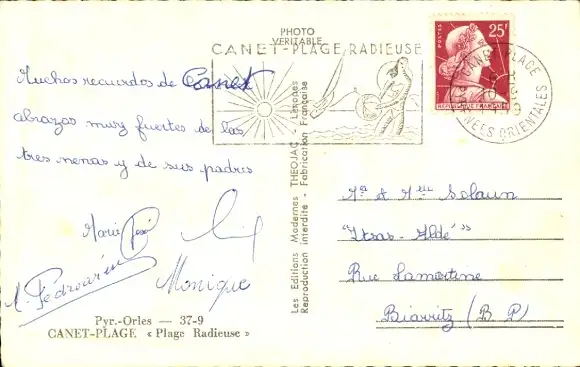 PHOTO
VERITABLE
CANET-PLAGE RADIEUSE
POSTES
25F
REPUBLIQUE FRANÇAISE
CANET PLAGE
ORIENTALES
Muchos recuerdos de Canet
abrazos muy fuertes de las
tres nenas y de sus padres
Marie José
Monique
Pyr.-Orles — 37-9
CANET-PLAGE « Plage Radieuse »
Les Editions Modernes THEOJAC - Limoges
Reproduction interdite - Fabrication Française
Mr et Mme Solaun
"Itsas-Aldé"
Rue Lamartine
Biarritz (B P)